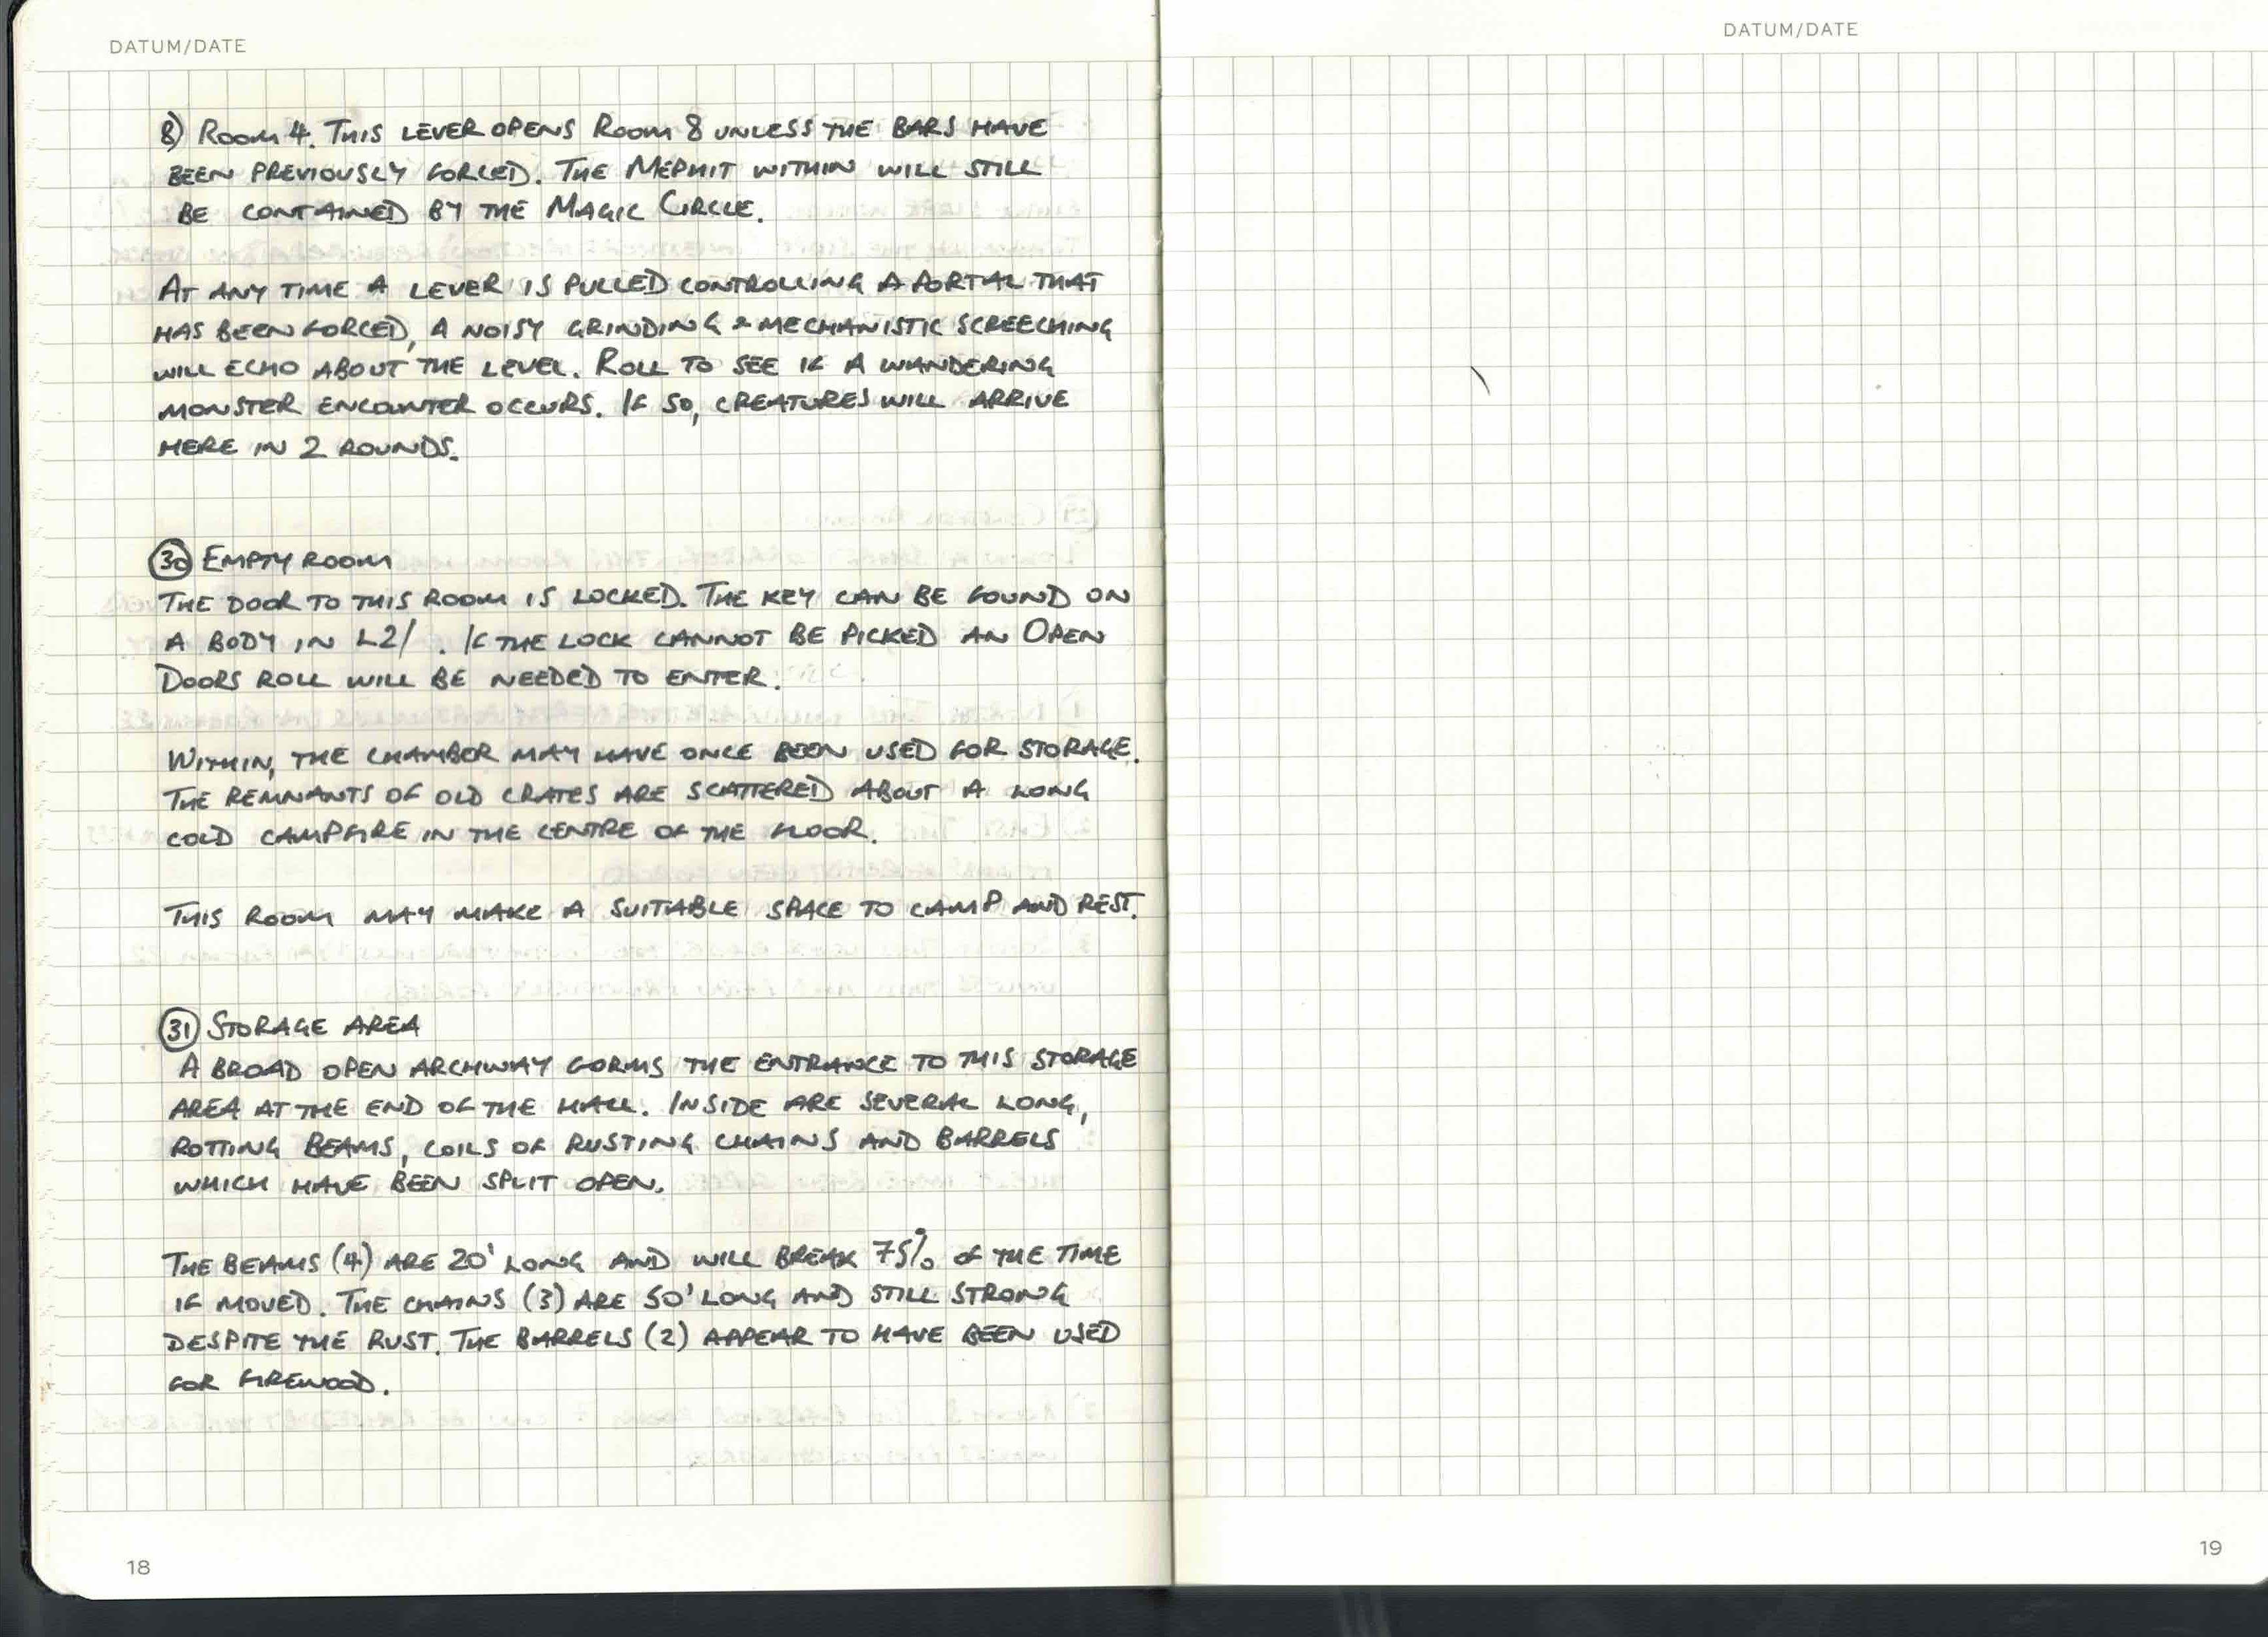 DATUM/DATE
8) ROOM 4. THIS LEVER OPENS ROOM 8 UNLESS THE BARS HAVE
BEEN PREVIOUSLY FORCED. THE MEPHIT WITHIN WILL STILL
BE CONTAINED BY THE MAGIC CIRCLE.
AT ANY TIME A LEVER IS PULLED CONTROLLING A PORTAL THAT
HAS BEEN FORCED, A NOISY GRINDING & MECHANISTIC SCREECHING
WILL ECHO ABOUT THE LEVEL. ROLL TO SEE IF A WANDERING
MONSTER ENCOUNTER OCCURS. IF SO, CREATURES WILL ARRIVE
HERE IN 2 ROUNDS.
30 EMPTY ROOM
THE DOOR TO THIS ROOM IS LOCKED. THE KEY CAN BE FOUND ON
A BODY IN L2/ . IF THE LOCK CANNOT BE PICKED AN OPEN
DOORS ROLL WILL BE NEEDED TO ENTER.
WITHIN, THE CHAMBER MAY HAVE ONCE BEEN USED FOR STORAGE.
THE REMNANTS OF OLD CRATES ARE SCATTERED ABOUT A LONG
COLD CAMPFIRE IN THE CENTRE OF THE FLOOR.
THIS ROOM MAY MAKE A SUITABLE SPACE TO CAMP AND REST.
31 STORAGE AREA
A BROAD OPEN ARCHWAY FORMS THE ENTRANCE TO THIS STORAGE
AREA AT THE END OF THE HALL. INSIDE ARE SEVERAL LONG,
ROTTING BEAMS, COILS OF RUSTING CHAINS AND BARRELS
WHICH HAVE BEEN SPLIT OPEN.
THE BEAMS (4) ARE 20' LONG AND WILL BREAK 75% OF THE TIME
IF MOVED. THE CHAINS (3) ARE 50' LONG AND STILL STRONG
DESPITE THE RUST. THE BARRELS (2) APPEAR TO HAVE BEEN USED
FOR FIREWOOD.
18
DATUM/DATE
19